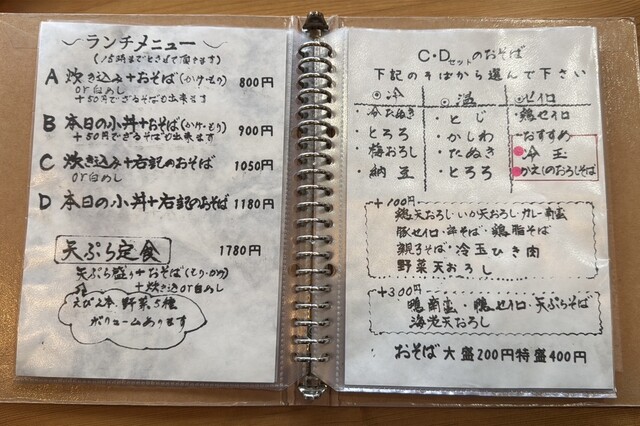 ランチメニュー
(15時までとさせて頂きます)
A 炊き込み+おそば(かけ・もり) 800円
or白めし
+50円でざるそば出来ます
B 本日の小丼+おそば(かけ・もり) 900円
+50円でざるそば出来ます
C 炊き込み+右記のおそば 1050円
or白めし
D 本日の小丼+右記のおそば 1180円
天ぷら定食 1780円
天ぷら盛り+おそば
+炊き込or白めし
えび2本 野菜5種
ボリュームあります
C・Dセットのおそば
下記のそばから選んで下さい
◎冷
・冷たぬき
・とろろ
・梅おろし
・納豆
◎温
・とじ
・かしわ
・たぬき
・とろろ
◎セイロ
・鶏セイロ
おすすめ
冷玉
かえしのおろしそば
+100円
鶏天おろし・いか天おろし・カレー南蛮
豚セイロ・
親子そば・冷玉ひき肉
野菜天おろし
+300円
鴨南蛮・鴨セイロ・天ぷらそば
海老天おろし
おそば大盛200円特盛400円